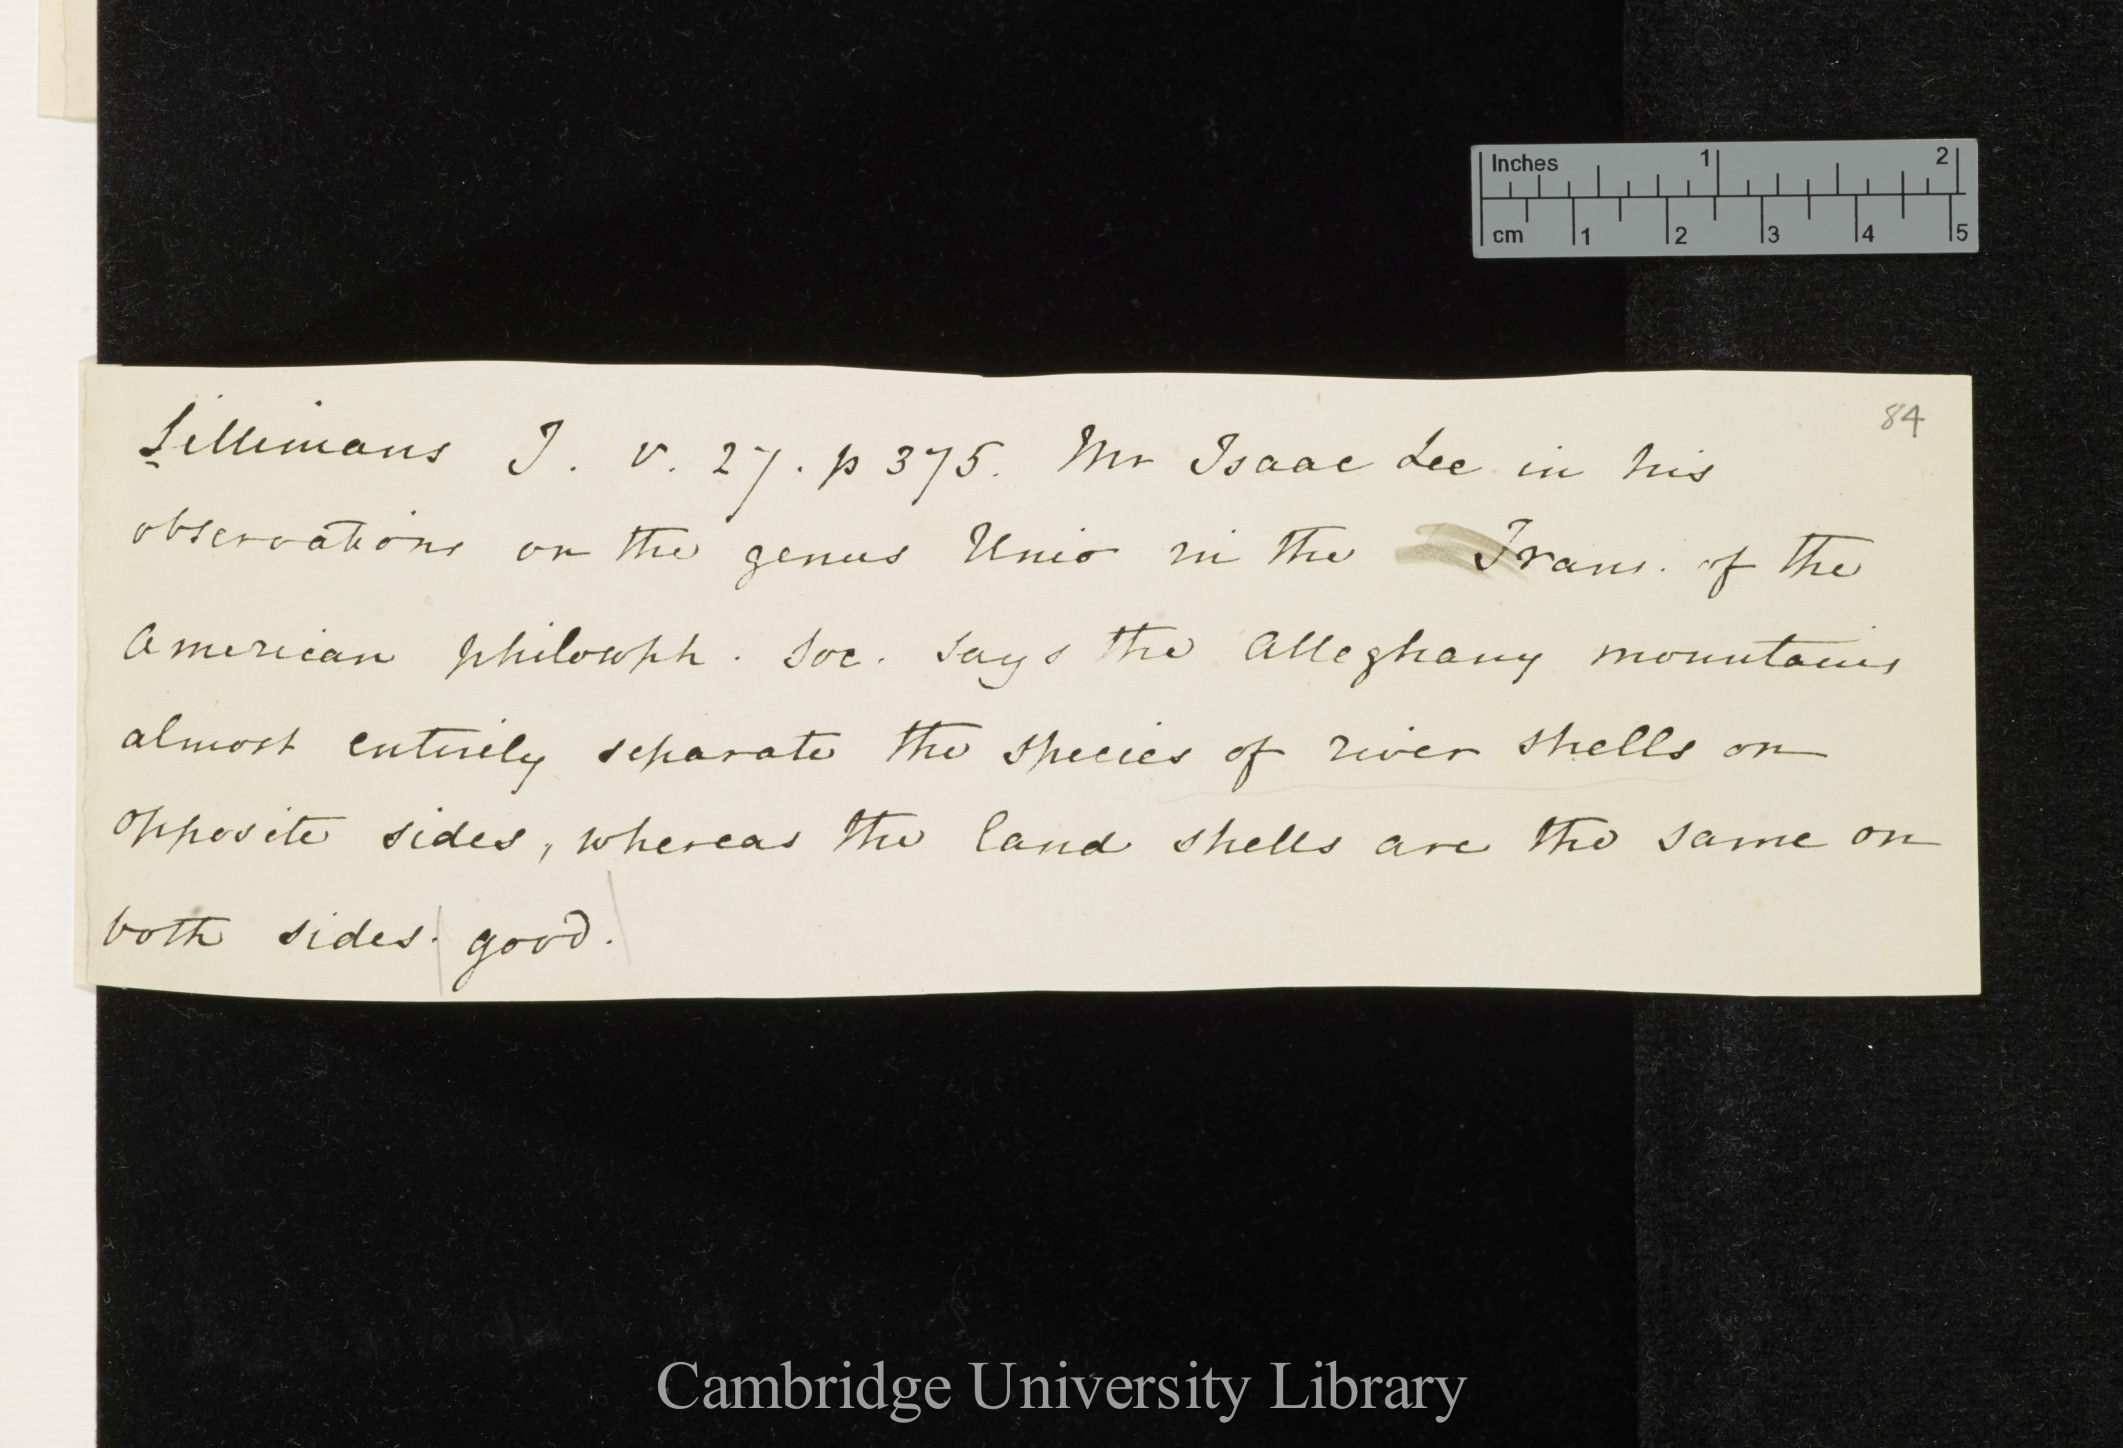 84
Sillimans J. v. 27. p 375. Mr Isaac Lee in his
observations on the genus Unio in the Trans. of the
American philosoph. Soc. says the Alleghany mountains
almost entirely separate the species of river shells on
opposite sides, whereas the land shells are the same on
both sides. good.
Inches 1 2
cm 1 2 3 4 5
Cambridge University Library